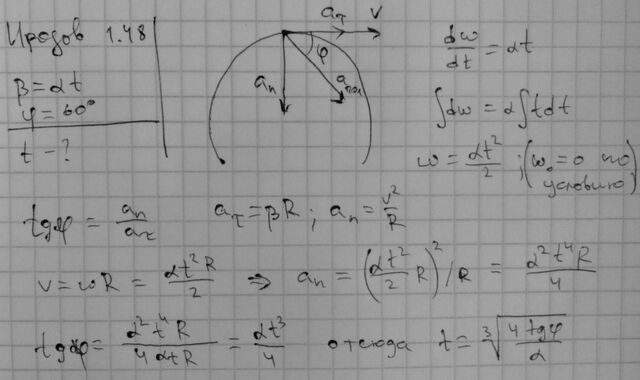 Иродов 1.48
β = αt
φ = 60°
t - ?
a_τ v
φ
a_n a_пол
dω/dt = αt
∫dω = α∫t dt
ω = αt²/2 ; (ω₀ = 0 по
условию)
tgφ = a_n/a_τ a_τ = βR ; a_n = v²/R
v = ωR = αt²R/2 ⇒ a_n = (αt²/2 R)²/R = α²t⁴R/4
tgφ = α²t⁴R/4αtR = αt³/4 отсюда t = ∛(4tgφ/α)